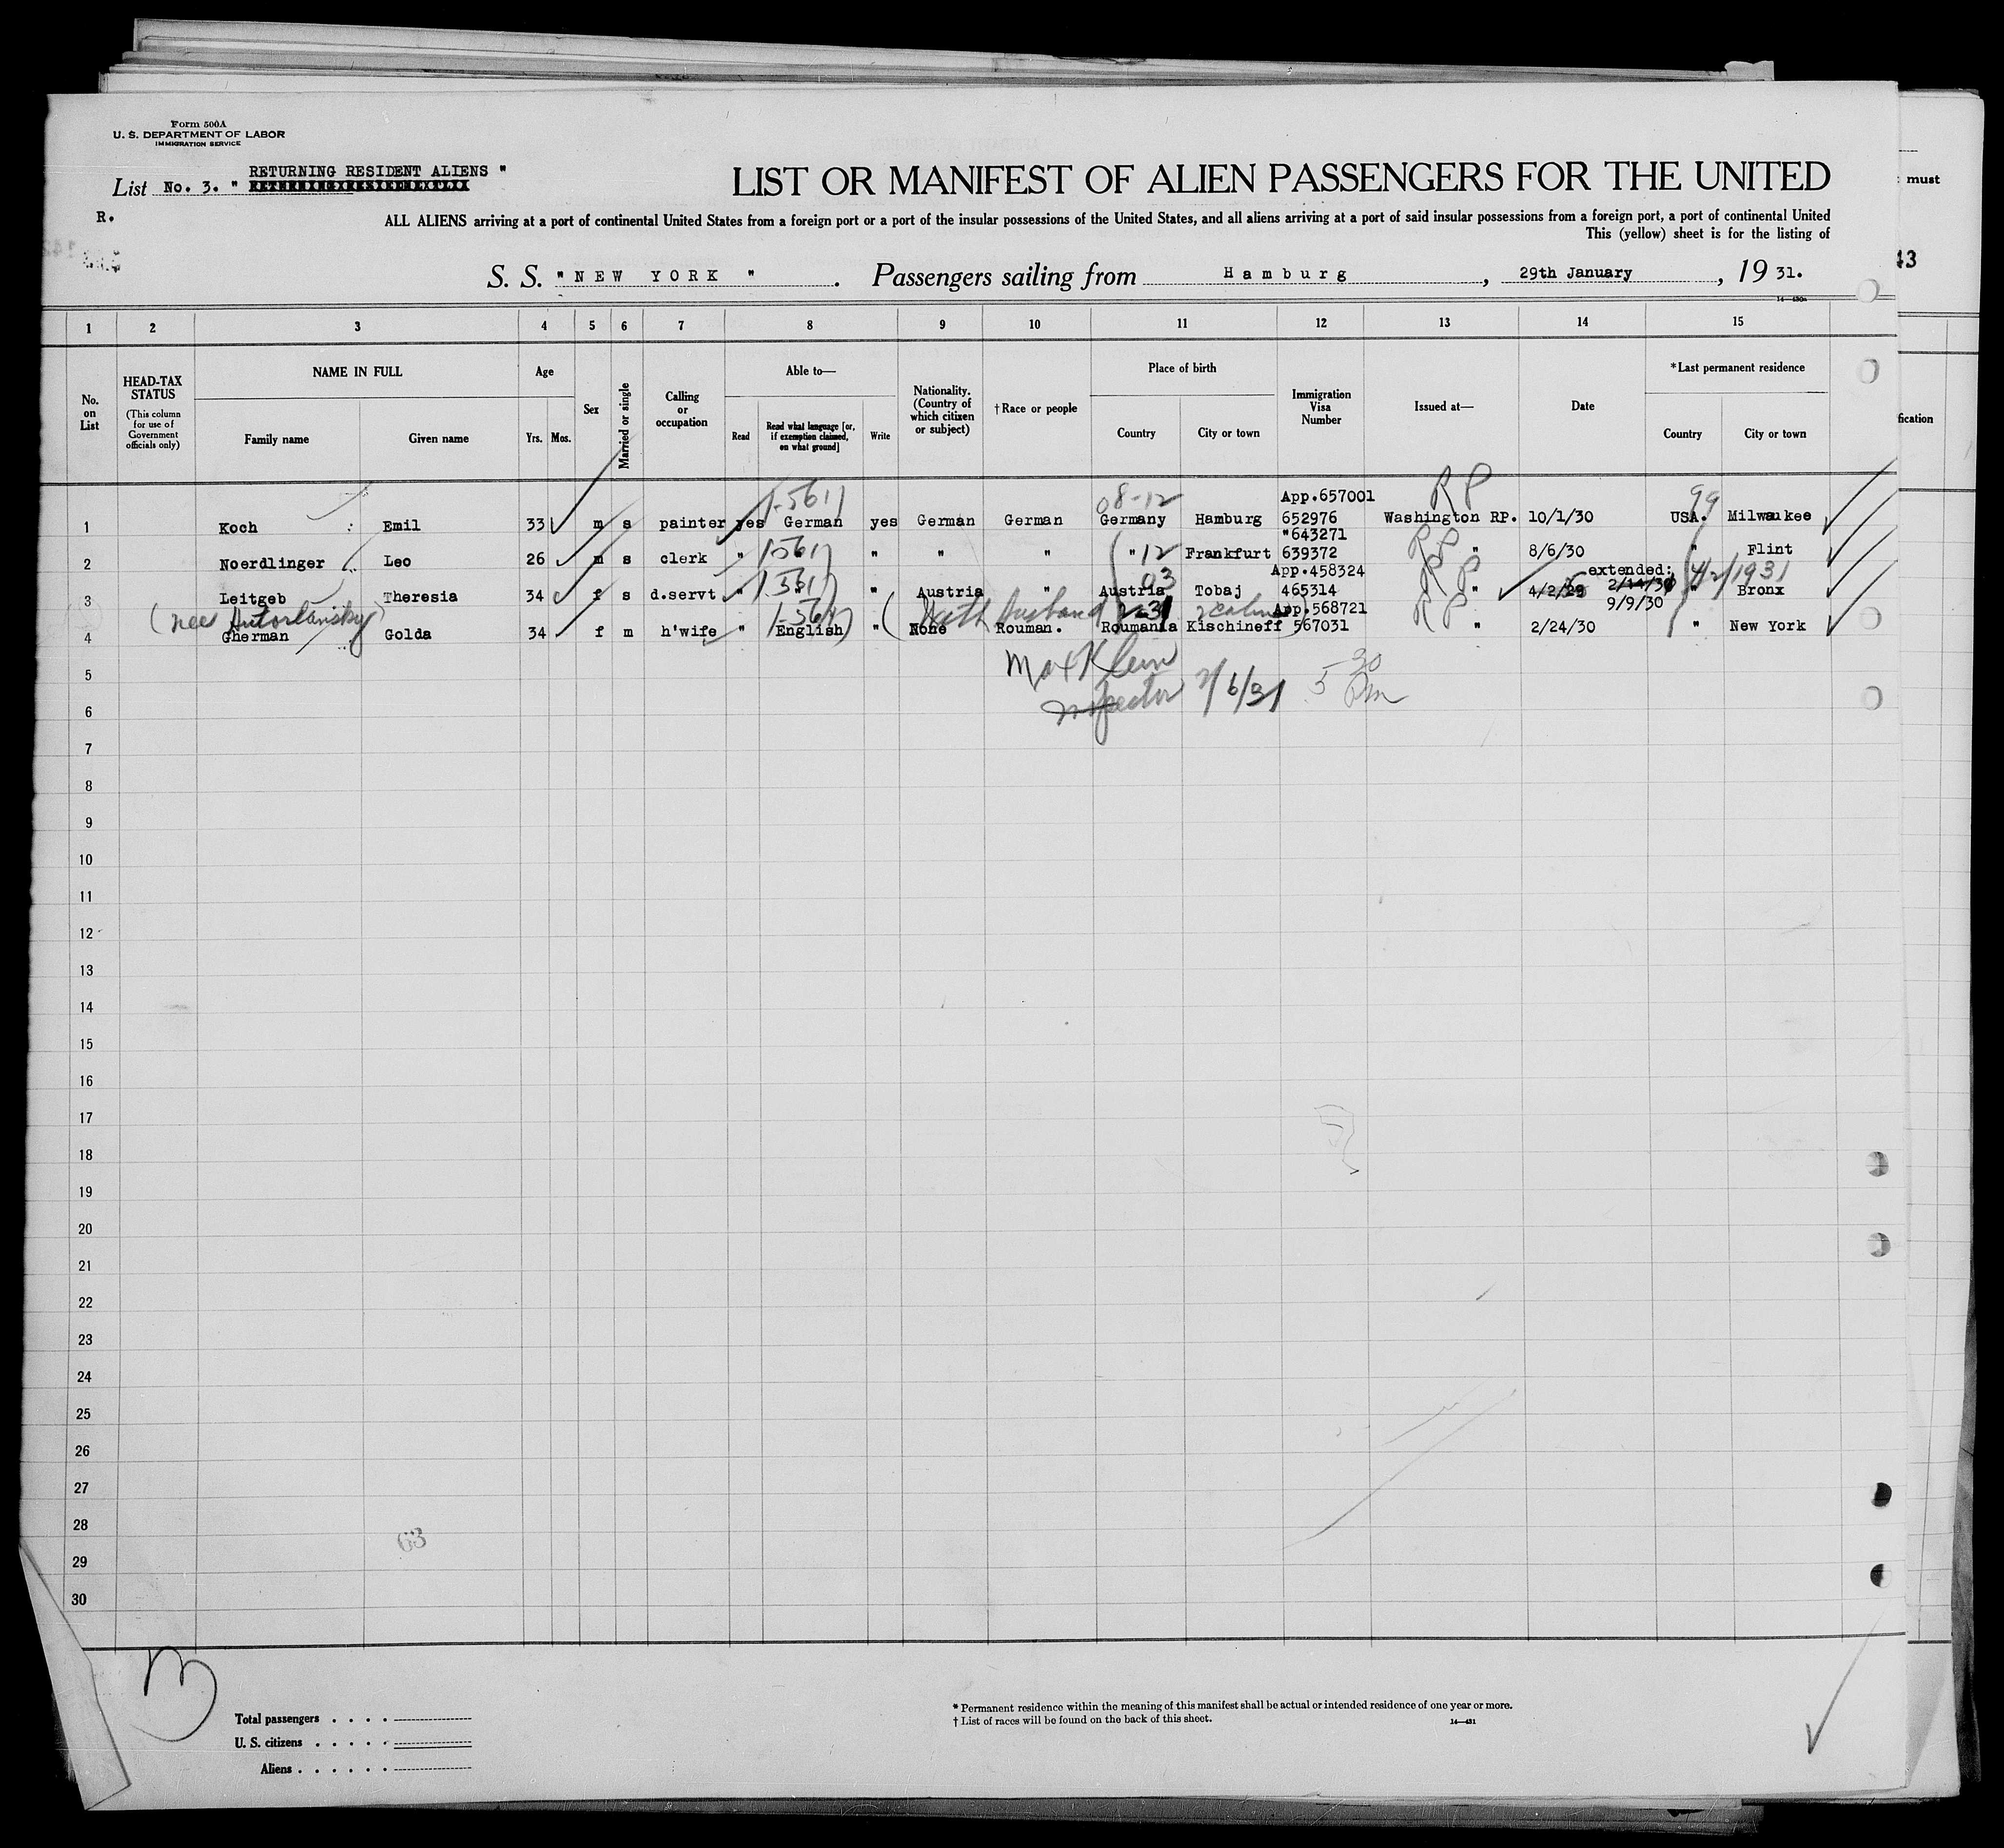 Form 500A
U. S. DEPARTMENT OF LABOR
IMMIGRATION SERVICE
RETURNING RESIDENT ALIENS "
List No. 3. "
R.
LIST OR MANIFEST OF ALIEN PASSENGERS FOR THE UNITED
ALL ALIENS arriving at a port of continental United States from a foreign port or a port of the insular possessions of the United States, and all aliens arriving at a port of said insular possessions from a foreign port, a port of continental United
This (yellow) sheet is for the listing of
S. S. "NEW YORK". Passengers sailing from Hamburg, 29th January, 19 31.
must
43
fication
1 2 3 4 5 6 7 8 9 10 11 12 13 14 15
No. on List
HEAD-TAX STATUS (This column for use of Government officials only)
NAME IN FULL
Family name
Given name
Age
Yrs. Mos.
Sex
Married or single
Calling or occupation
Able to—
Read
Read what language [or, if exemption claimed, on what ground]
Write
Nationality. (Country of which citizen or subject)
† Race or people
Place of birth
Country
City or town
Immigration Visa Number
Issued at—
Date
*Last permanent residence
Country
City or town
1-561) 08-12 App.657001 RP 99
1 Koch Emil 33 m s painter yes German yes German German Germany Hamburg 652976 Washington RP. 10/1/30 USA. Milwaukee
1-561) "643271 RP
2 Noerdlinger Leo 26 m s clerk " " " " " " 12 Frankfurt 639372 " 8/6/30 " Flint
1-561) 03 App.458324 RP extended: 4/2/1931
3 Leitgeb Theresia 34 f s d.servt " " " Austria " Austria Tobaj 465314 " 4/2/29 2/14/30 " Bronx
(nee 1-564) with husband App.568721 RP 9/9/30
4 Gherman Golda 34 f m h'wife " English " None Rouman. Roumania Kischineff 567031 " 2/24/30 " New York
5 Max Klein 5 30 Pm
6 Inspector 2/6/31
7
8
9
10
11
12
13
14
15
16
17
18
19
20
21
22
23
24
25
26
27
28
63
29
30
3
Total passengers
U. S. citizens
Aliens
* Permanent residence within the meaning of this manifest shall be actual or intended residence of one year or more.
† List of races will be found on the back of this sheet.
14—431